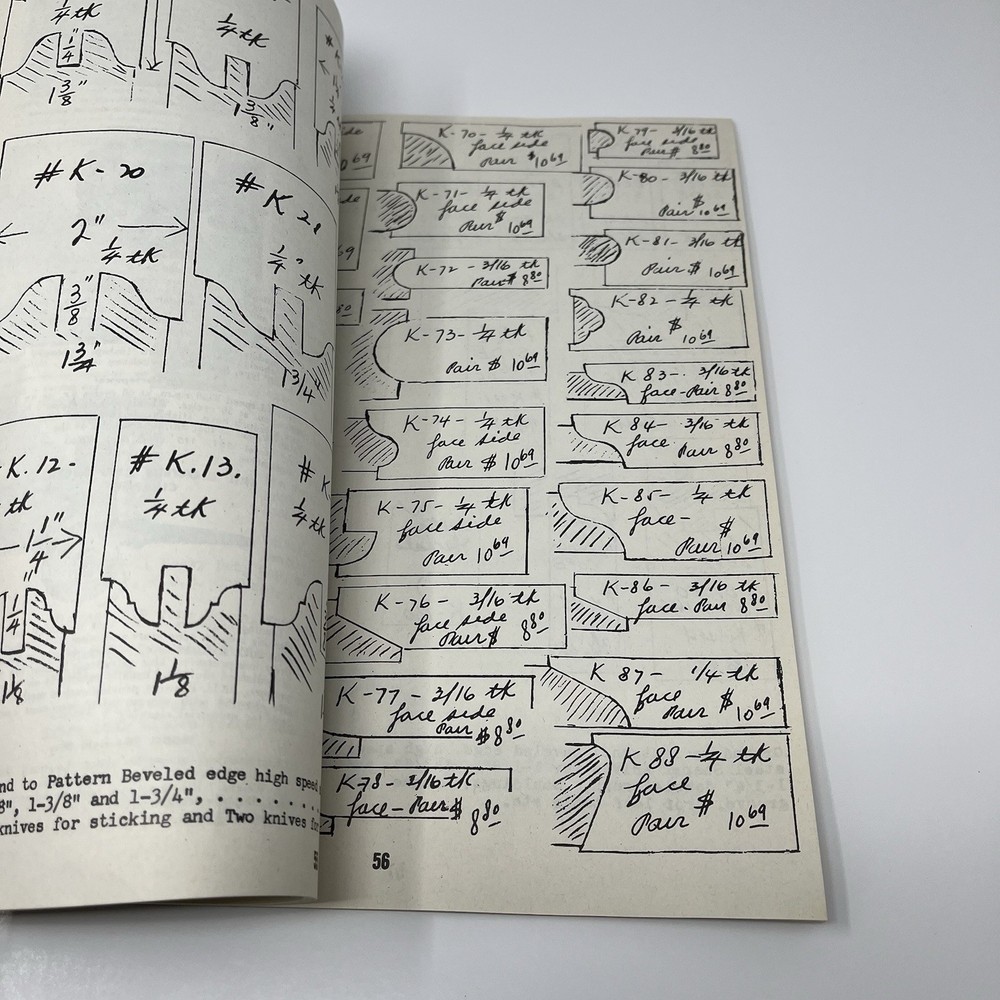 1/4 tk
1"
4
1 3/8"
1/4 tk
1 3/8"
# K-20
2"
1/4 tk
3/8"
1 3/4"
# K 21
1/4" tk
1 3/4"
K.12-
tk
1 1/4"
1/4"
1 1/8
# K.13.
1/4 tk
1 1/8
# K
1/4 tk
nd to Pattern Beveled edge high speed
8", 1-3/8" and 1-3/4", . . . . . . . .
knives for sticking and Two knives
K-70- 1/4 tk
face side
Pair $10 69
K-71- 1/4 tk
face side
Pair $ 10 69
K-72 - 3/16 tk
Pair $ 8 80
K-73- 1/4 tk
Pair $ 10 69
K-74- 1/4 tk
face side
Pair $ 10 69
K-75- 1/4 tk
face side
Pair 10 69
K-76 - 3/16 tk
face side
Pair $ 8 80
K-77- 3/16 tk
face side
Pair $ 8 80
K-78- 3/16 tk
face- Pair $ 8 80
K 79- 3/16 tk
face side
Pair $ 8 80
K-80- 3/16 tk
Pair $ 10 69
K-81- 3/16 tk
Pair $ 10 69
K-82- 1/4 tk
Pair $ 10 69
K 83- 3/16 tk
face-Pair 8 80
K 84- 3/16 tk
face- Pair 8 80
K-85- 1/4 tk
face-
Pair $ 10 69
K-86- 3/16 tk
face- Pair 8 80
K 87- 1/4 tk
face
Pair $ 10 69
K 88- 1/4 tk
face
Pair $ 10 69
56